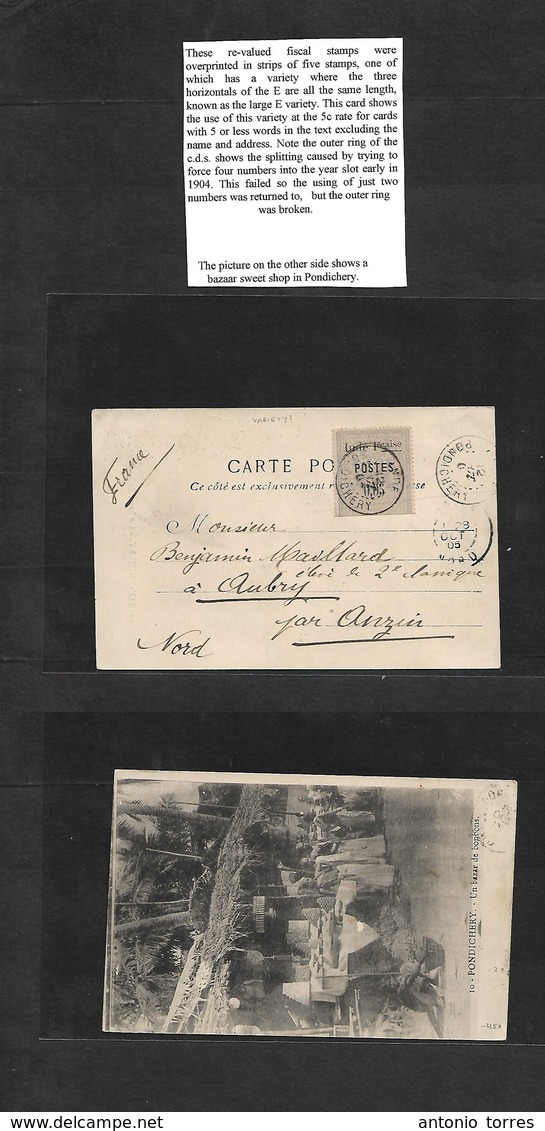 These re-valued fiscal stamps were
overprinted in strips of five stamps, one of
which has a variety where the three
horizontals of the E are all the same length,
known as the large E variety. This card shows
the use of this variety at the 5c rate for cards
with 5 or less words in the text excluding the
name and address. Note the outer ring of the
c.d.s. shows the splitting caused by trying to
force four numbers into the year slot early in
1904. This failed so the using of just two
numbers was returned to, but the outer ring
was broken.
The picture on the other side shows a
bazaar sweet shop in Pondichery.
VARIETY!
France
CARTE PO
Ce côté est exclusivement r
Inde Fçaise
POSTES
PONDICHERY
PONDICHERY
OCT
05
Monsieur
Benjamin Maillard
élève de 2e classique
à Aubry
par Anzin
Nord
10 - PONDICHERY. - Un bazar de bonbons.
450
antonio torres